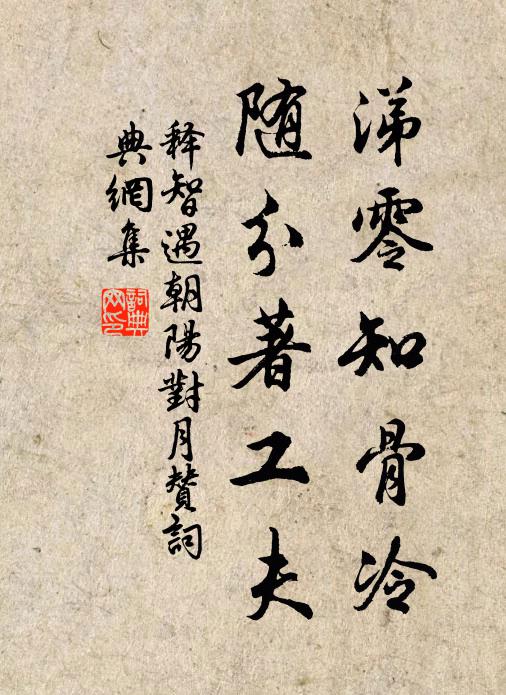 涕零知骨冷
随分著工夫
释智遇朝陽對月贊詞
典網集
詞典網印